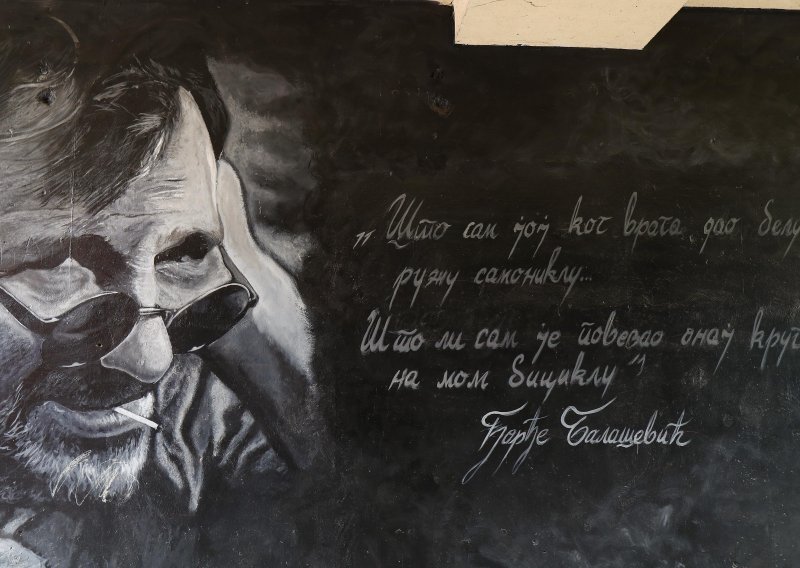 „Што сам јој код врата дао белу
ружу самониклу...
Што ли сам је повезао онај круг
на мом бициклу"
Ђорђе Балашевић